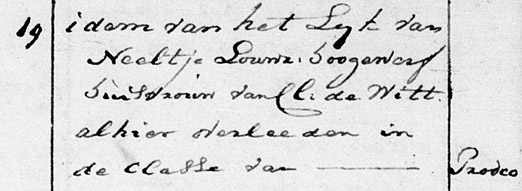 19 idem van het Lyk van
Neeltje Louwz: Hoogewerf
Huisvrouw van Cl: de Witt
alhier overleeden in
de Classe van ——— Prodeo